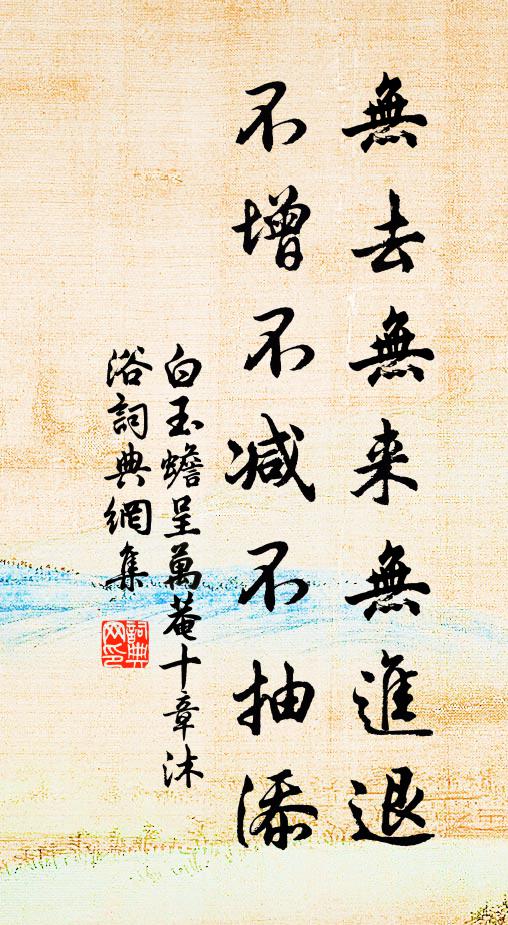 無去無来無進退
不增不减不抽添
白玉蟾呈萬菴十章沐
浴詞典網集
詞典
网印